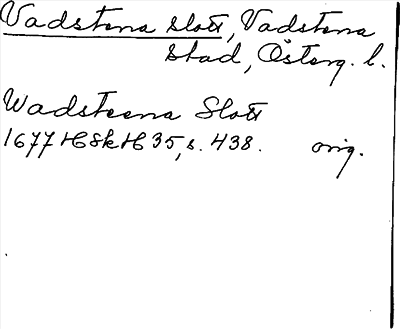 Vadstena slott, Vadstena
stad, Österg. l.
Wadsteena Slott
1677 HSkH 35, s. 438. orig.